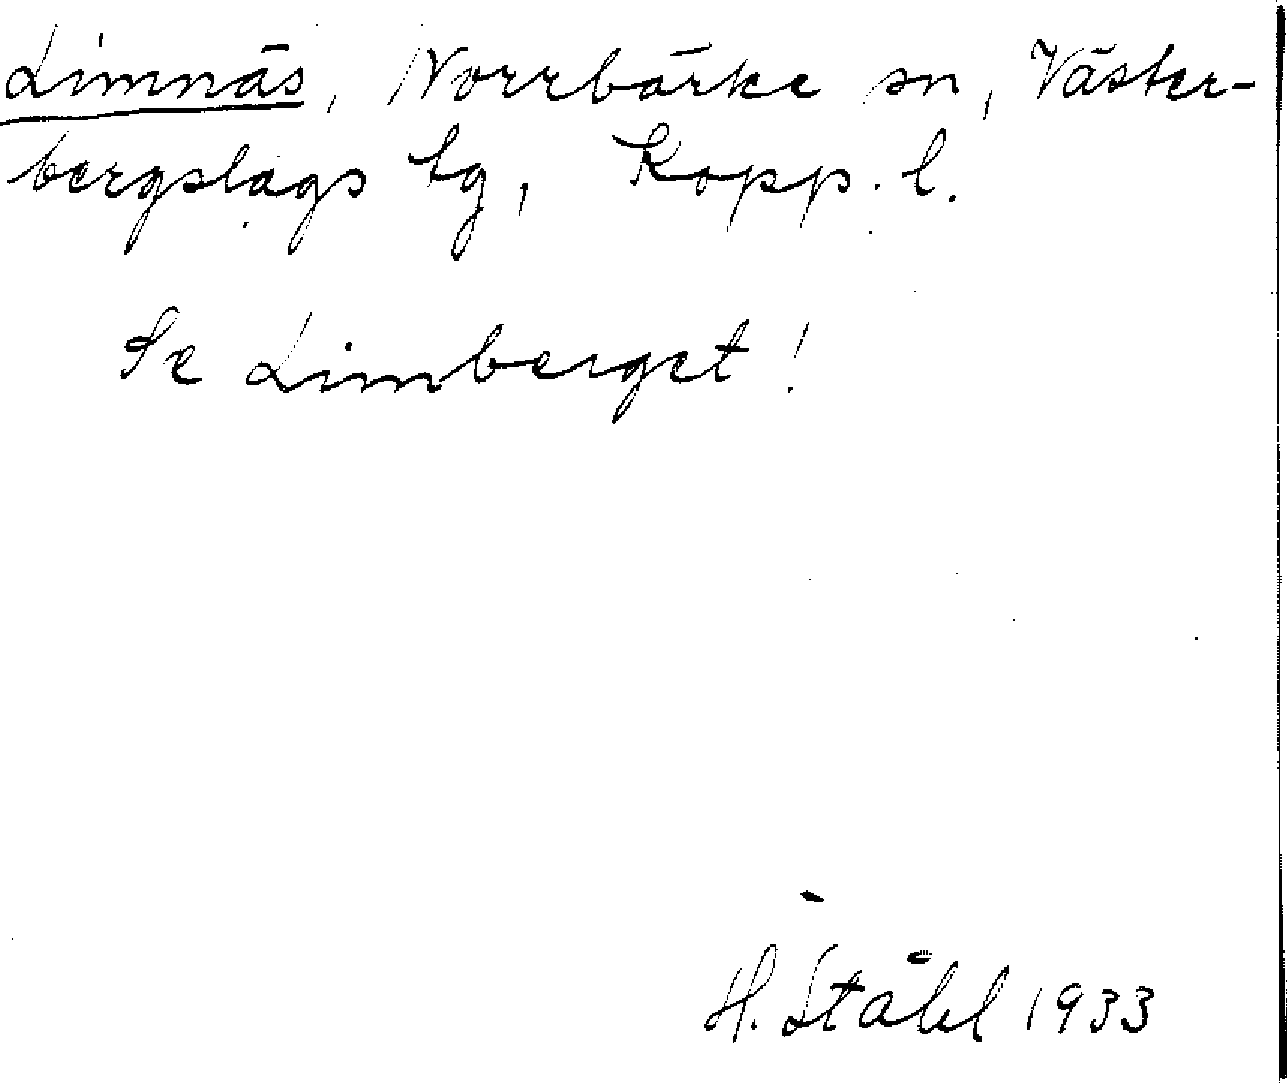 Limnäs, Norrbärke sn, Väster-
bergslags tg, Kopp. l.
Se Limberget!
H. Ståhl 1933